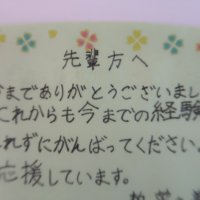 先輩方へ
までありがとうございまし
これからも今までの経験
れずにがんばってください。
応援しています。